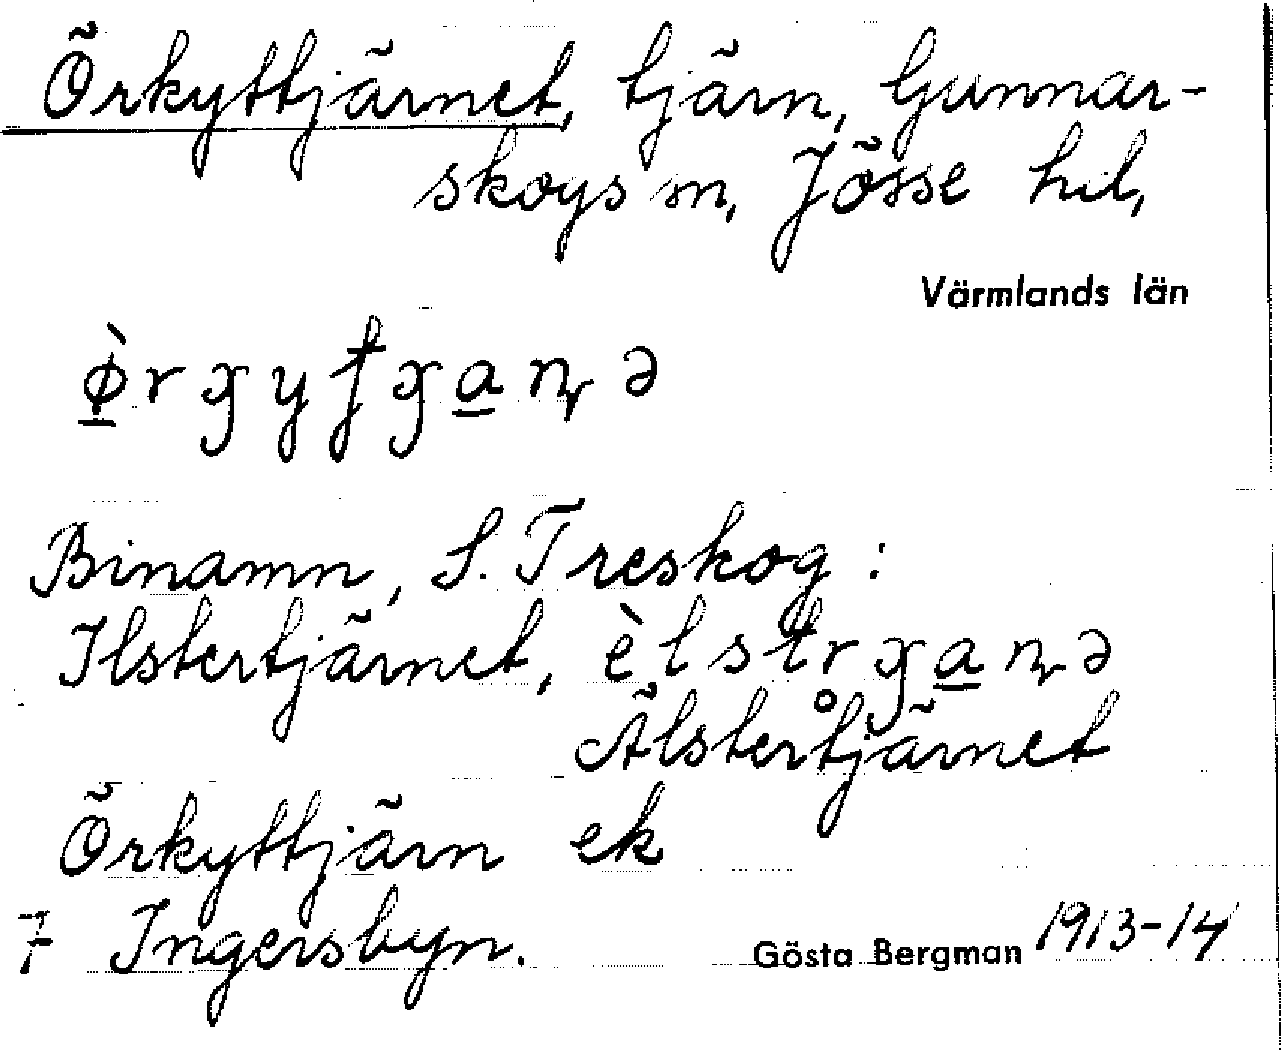 Örkyttjärnet, tjärn, Gunnar-
skogs sn, Jösse hd,
Värmlands län
Binamn, S. Treskog :
Ilstertjärnet,
Älstertjärnet
Örkyttjärn ek
7 Ingersbyn. Gösta Bergman 1913-14